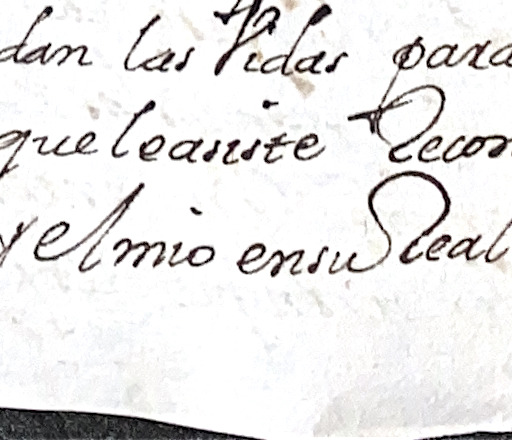 dan las Vidas para
que leasiste Recon
y el mio ensu Real